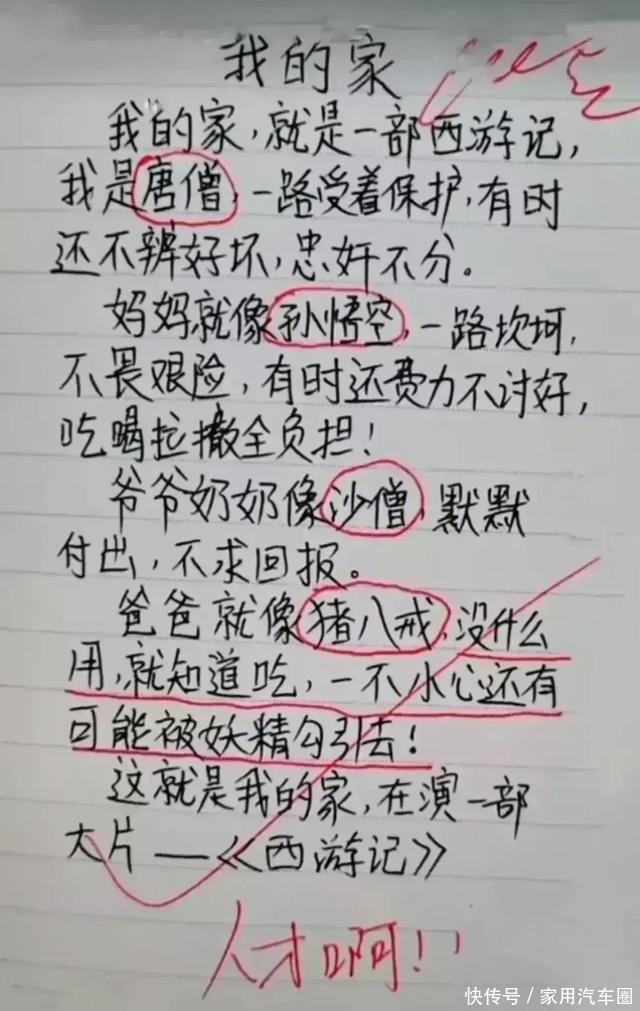 我的家
我的家，就是一部西游记，
我是唐僧，一路受着保护，有时
还不辨好坏，忠奸不分。
妈妈就像孙悟空，一路坎坷，
不畏艰险，有时还费力不讨好，
吃喝拉撒全负担！
爷爷奶奶像沙僧，默默
付出，不求回报。
爸爸就像猪八戒，没什么
用，就知道吃，一不小心还有
可能被妖精勾引去！
这就是我的家，在演一部
大片——《西游记》
人才啊！！
快传号/家用汽车圈